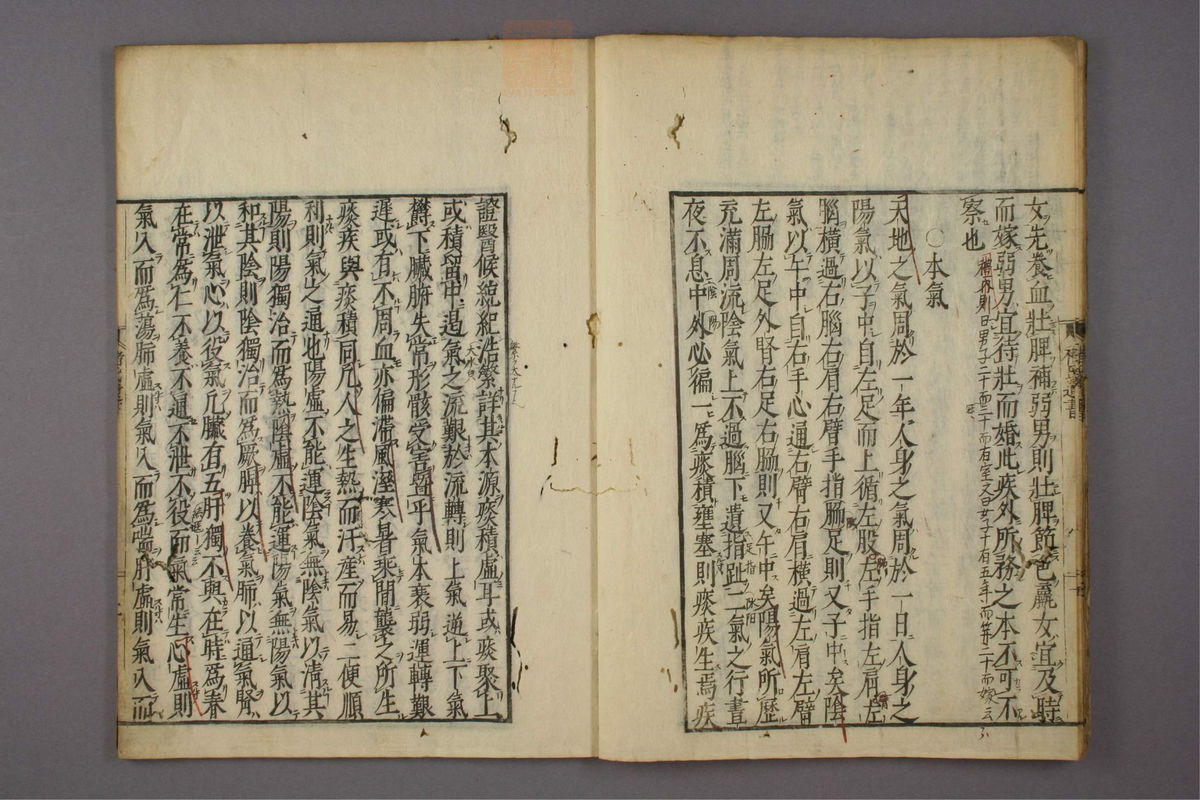 女先養血壯脾補弱男則壯脾節色羸女宜及時
而嫁弱男宜待壯而婚此疾外所務之本不可不
察也
禮內則曰男子二十而三十而有室又曰女子十有五年而笄二十而嫁云々
○本氣
天地之氣周於一年人身之氣周於一日人身之
陽氣以子中自左足而上循左股左手指左肩左
腦橫過右腦右肩右臂手指腸足則又子中矣陰
氣以午中自右手心通右臂右肩橫過左肩左臂
左腸左足外腎右足右腸則又午中矣陽氣所歷
充滿周流陰氣上不過腦下遺指趾二氣之行晝
夜不息中外必徧一爲痰積壅塞則痰疾生焉疾
證醫候統紀浩繁詳其本源痰積虛耳或痰聚上
或積留中遏氣之流艱於流轉則上氣逆上下氣
欝下臟腑失常形骸受害暨乎氣本衰弱運轉艱
遲或有不周血亦偏滯風溼寒暑乘間襲之所生
痰疾與痰積同凡人之生熱而汗產而易二便順
利則氣之通也陽虛不能運陰氣無陰氣以淸其
陽則陽獨治而爲熱陰虛不能運陽氣無陽氣以
和其陰則陰獨治而爲厥脾以養氣肺以通氣腎
以泄氣心以役氣凡臟有五肝獨不與在時爲春
在常爲仁不養不通不泄不役而氣常生心虛則
氣入而爲蕩肺虛則氣入而爲喘肝虛則氣入而